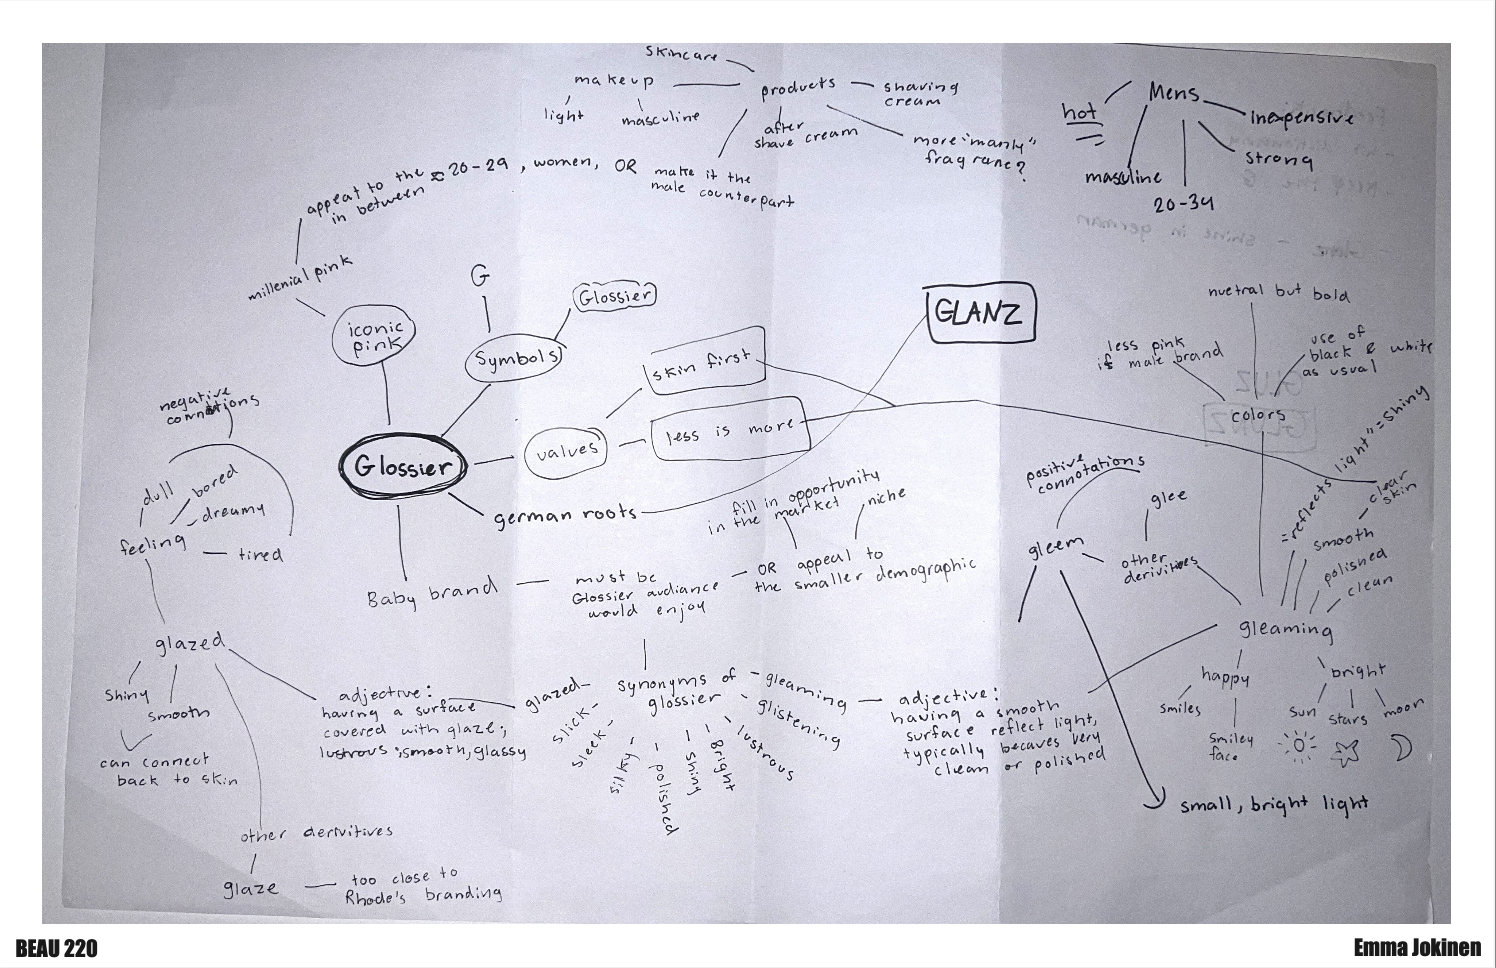 skincare
makeup
light
masculine
products
shaving
cream
after
shave cream
more "manly"
fragrane?
make it the
male counterpart
appeal to the ≈ 20-29, women, OR
in between
millenial pink
iconic
pink
Mens
hot
masuline
20-34
strong
inexpensive
G
Symbols
Glossier
Glossier
values
skin first
less is more
GLANZ
german roots
Baby brand
must be
Glossier audiance
would enjoy
OR appeal to
the smaller demographic
fill in opportunity
in the market
niche
nuetral but bold
less pink
if male brand
use of
black & white
as usual
colors
negative
connotions
dull
bored
dreamy
tired
feeling
glazed
Shiny
smooth
can connect
back to skin
adjective:
having a surface
covered with glaze;
lustrous; smooth, glassy
other derivitives
glaze
too close to
Rhode's branding
synonyms of
glossier
glazed
slick
sleek
silky
polished
shiny
Bright
lustrous
glistening
gleaming
adjective:
having a smooth
surface reflect light,
typically becaves very
clean or polished
positive
connotations
gleem
glee
other
derivitives
gleaming
=reflects light"=shiny
smooth
clear
skin
polished
clean
happy
smiles
smiley
face
bright
sun
stars
moon
small, bright light
Glanz - shine in german
GLUZ
GLANZ
BEAU 220
Emma Jokinen